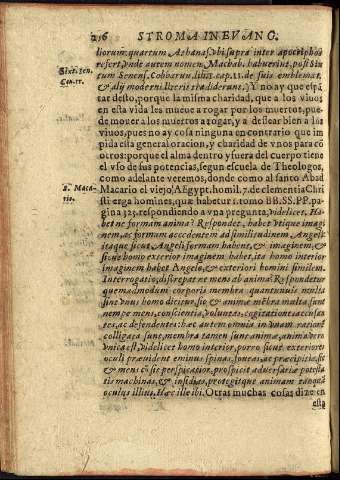 216 STROMA IN EVANG.
liorum: quartum Athanas. vbi supra inter apocriphos
refert, vnde autem nomen Machab. habuerint, post Six
Sixt. sen.
Cen. rr.
tum Senens. Cobarun. lib. 2. cap. 11. de suis emblemat.
& alij moderni literis tradiderunt.) Y no ay que espã
tar desto, porque la misma charidad, que a los viuos
en esta vida les mueue a rogar por los muertos, pue
de mouer a los muertos a rogar, y a dessear bien a los
viuos, pues no ay cosa ninguna en contrario que im
pida esta general oracion, y charidad de vnos para cõ
otros: porque el alma dentro y fuera del cuerpo tiene
el vso de sus potencias, segun escuela de Theologos,
como adelante veremos, donde como al santo Abad
S. Maca-
rio.
Macario el viejo Aegypt. homil. 7. de clementia Chri
sti erga homines, quæ habetur 1. tomo BB. SS. PP. pa
gina 323. respondiendo a vna pregunta, videlicet. Ha
bet ne formam anima? Respondet, habet vtique imagi
nem, ac formam accedentem ad similitudinem, Angeli:
itaque sicut Angeli formam habent, & imaginem, &
sicut homo exterior imaginem habet, ita homo interior
imaginem habet Angelo, & exteriori homini similem.
Interrogatio, discrepat ne mens ab anima? Respondetur
quemadmodum corporis membra quantumuis multa
sint vnus homo dicitur, sic & animæ mẽbra multa sunt
nempe mens, conscientia, voluntas, cogitationes accusan
tes, ac defendentes: hæc autem omnia in vnam rationẽ
colligata sunt, membra tamen sunt animæ, anima verò
vnica est, videlicet homo interior, porro sicut exteriores
oculi præuident eminus spinas, foueas, ac præcipitia, sic
& mens cũ sit perspicatior, prospicit aduersariæ potesta
tis machinas, & insidias, protegitque animam tanquã
oculus illius. Hæc ille ibi. Otras muchas cosas dize en
esta